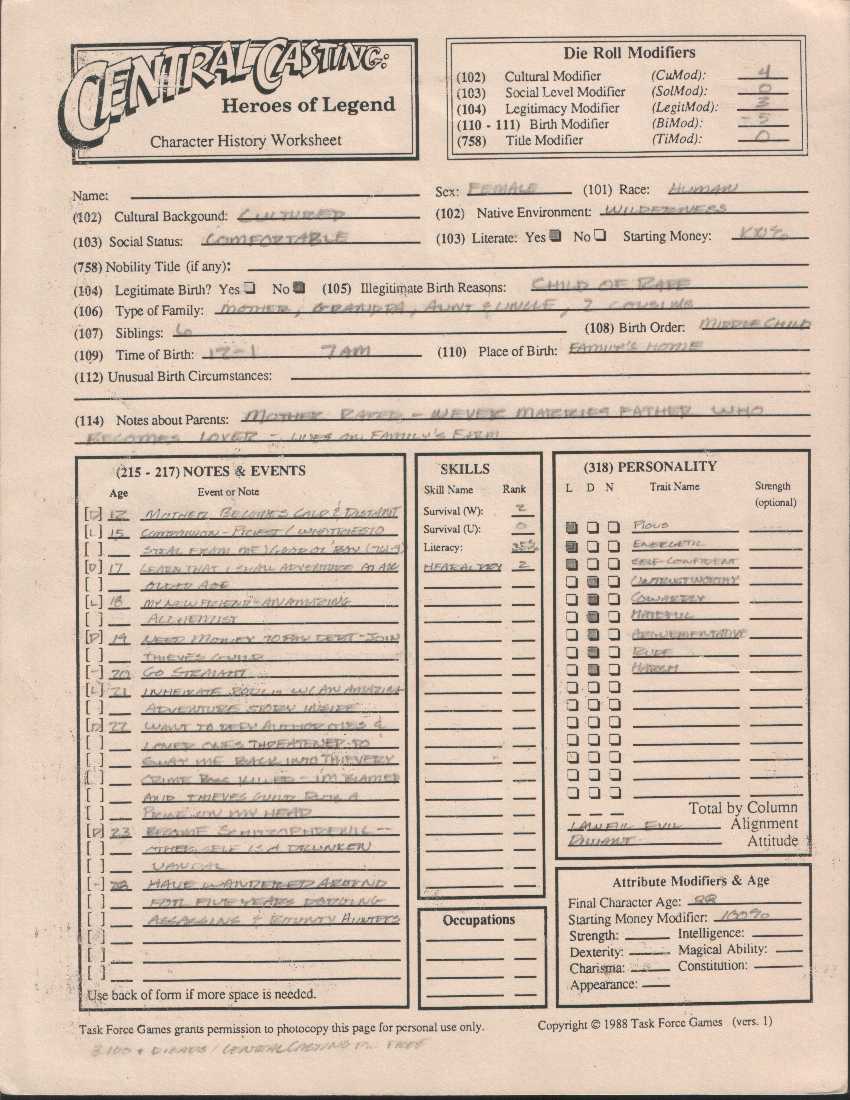 CENTRAL CASTING:
Heroes of Legend
Character History Worksheet
Die Roll Modifiers
(102) Cultural Modifier (CuMod): 4
(103) Social Level Modifier (SolMod): 0
(104) Legitimacy Modifier (LegitMod): 3
(110 - 111) Birth Modifier (BiMod): -5
(758) Title Modifier (TiMod): 0
Name:
Sex: FEMALE (101) Race: HUMAN
(102) Cultural Backgound: CULTURED (102) Native Environment: WILDERNESS
(103) Social Status: COMFORTABLE (103) Literate: Yes No Starting Money:
(758) Nobility Title (if any):
(104) Legitimate Birth? Yes No (105) Illegitimate Birth Reasons: CHILD OF RAPE
(106) Type of Family: MOTHER, GRANDPA, AUNT & UNCLE, 2 COUSINS
(107) Siblings: 6 (108) Birth Order: MIDDLE CHILD
(109) Time of Birth: 12-1 7AM (110) Place of Birth: FAMILY'S HOME
(112) Unusual Birth Circumstances:
(114) Notes about Parents: MOTHER RAPED - NEVER MARRIES FATHER WHO
BECOMES LOVER - LIVES ON FAMILY'S FARM
(215 - 217) NOTES & EVENTS
Age Event or Note
[D] 12 MOTHER BECOMES COLD & DISTANT
[L] 15 COMPANION - PRIEST / WHO TRIES TO
[ ] STEAL FROM ME / GOOD OL' BOY
[D] 17 LEARN THAT I SHALL ADVENTURE AT AN
[ ] OLDER AGE
[L] 18 MY NEW FRIEND - AN AMAZING
[ ] ALCHEMIST
[D] 19 NEED MONEY TO PAY DEBT - JOIN
[ ] THIEVES GUILD
[-] 20 GO STRAIGHT
[L] 21 INHERITE W/ AN AMAZING
[ ] ADVENTURE STORY INSIDE
[D] 22 WANT TO DEFY AUTHORITIES &
[ ] LOVED ONES THREATENED TO
[ ] SWAY ME BACK INTO THIEVERY
[ ] CRIME BOSS KILLED - I'M BLAMED
[ ] AND THIEVES GUILD PUTS A
[ ] PRICE ON MY HEAD
[D] 23 BECOME SCHIZOPHRENIC --
[ ] OTHER SELF IS A DRUNKEN
[ ] VANDAL
[-] 28 HAVE WANDERED AROUND
[ ] FOR FIVE YEARS DODGING
[ ] ASSASSINS & BOUNTY HUNTERS
[ ]
[ ]
[ ]
Use back of form if more space is needed.
SKILLS
Skill Name Rank
Survival (W): 2
Survival (U): 0
Literacy: 35%
HERALDRY 2
Occupations
(318) PERSONALITY
L D N Trait Name Strength
(optional)
PIOUS
ENERGETIC
SELF-CONFIDENT
UNTRUSTWORTHY
COWARDLY
HATEFUL
ARGUEMENTATIVE
RUDE
HARSH
Total by Column
LAWFUL EVIL Alignment
DEVIANT Attitude
Attribute Modifiers & Age
Final Character Age: 28
Starting Money Modifier: 100%
Strength: Intelligence:
Dexterity: Magical Ability:
Charisma: Constitution:
Appearance:
Task Force Games grants permission to photocopy this page for personal use only.
Copyright © 1988 Task Force Games (vers. 1)